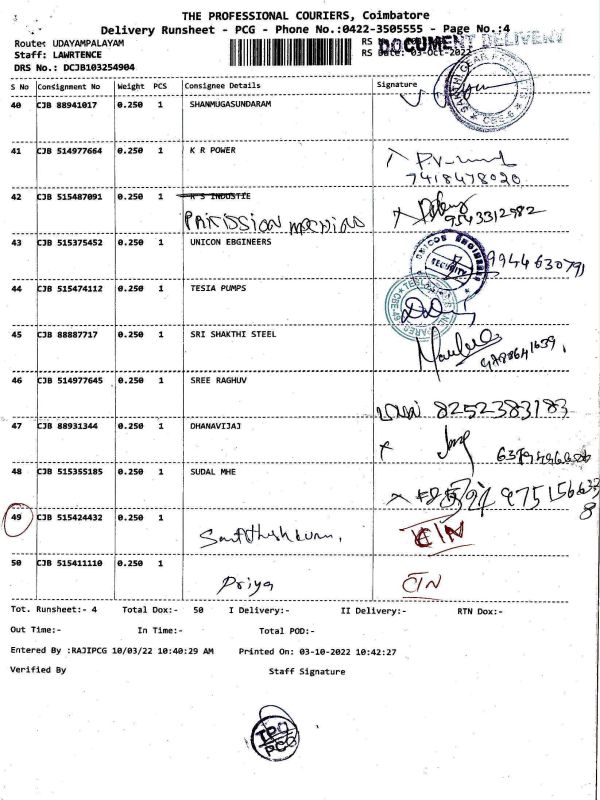 THE PROFESSIONAL COURIERS, Coimbatore
Delivery Runsheet - PCG - Phone No.:0422-3505555 - Page No.:4
DOCUMENT DELIVERY
Route: UDAYAMPALAYAM
Staff: LAWRTENCE RS Date: 03-Oct-2022
DRS No.: DCJB103254904
S No Consignment No Weight PCS Consignee Details Signature
40 CJB 88941017 0.250 1 SHANMUGASUNDARAM
41 CJB 514977664 0.250 1 K R POWER
7418478020
42 CJB 515487091 0.250 1 K S INDUSTIE
9543312982
43 CJB 515375452 0.250 1 UNICON EBGINEERS
UNICON ENGINEERS SECURITY
9944630791
44 CJB 515474112 0.250 1 TESIA PUMPS
45 CJB 88887717 0.250 1 SRI SHAKTHI STEEL
46 CJB 514977645 0.250 1 SREE RAGHUV
8252383183
47 CJB 88931344 0.250 1 DHANAVIJAJ
48 CJB 515355185 0.250 1 SUDAL MHE
49 CJB 515424432 0.250 1
CIN
50 CJB 515411110 0.250 1
Priya CIN
Tot. Runsheet:- 4 Total Dox:- 50 I Delivery:- II Delivery:- RTN Dox:-
Out Time:- In Time:- Total POD:-
Entered By :RAJIPCG 10/03/22 10:40:29 AM Printed On: 03-10-2022 10:42:27
Verified By Staff Signature
TPO
PCG